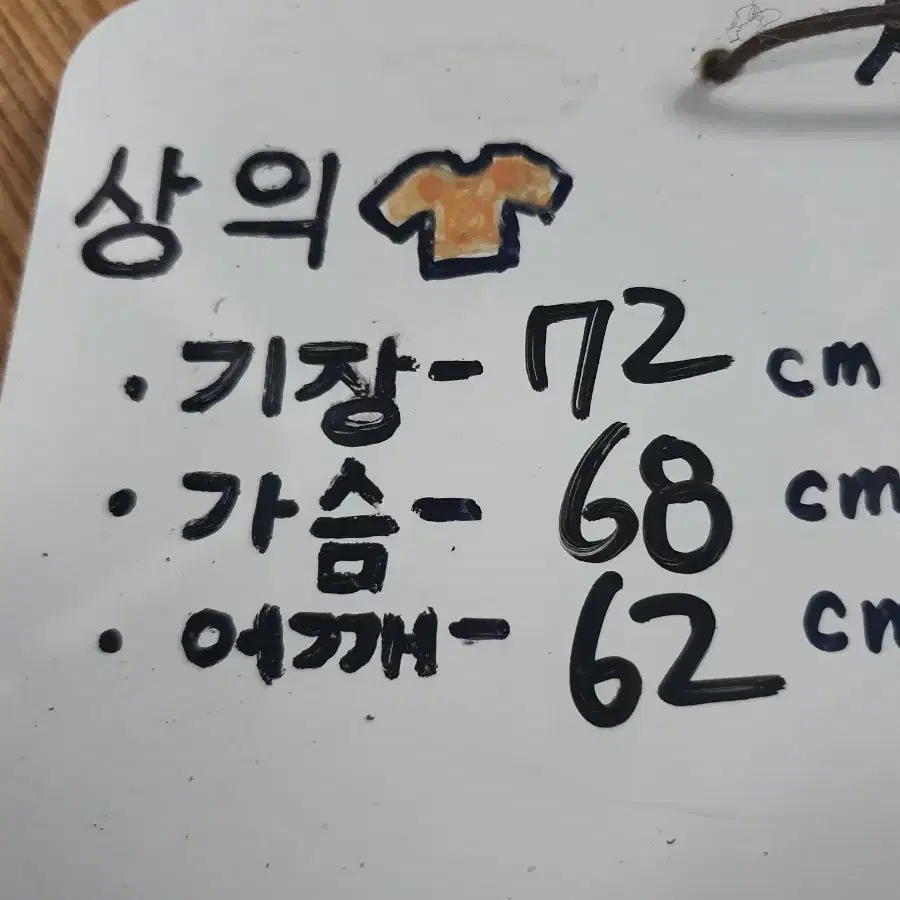 상의
· 기장- 72 cm
· 가슴- 68 cm
· 어깨- 62 cm